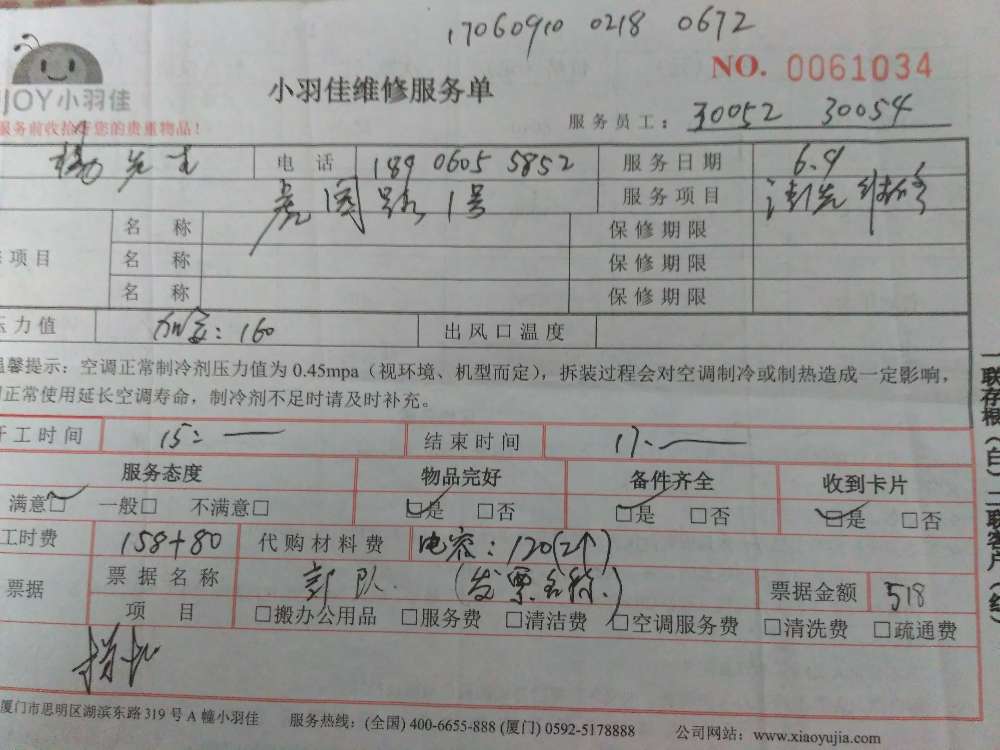 17060910 0218 0672
NO. 0061034
JOY小羽佳
小羽佳维修服务单
服务前收拾好您的贵重物品!
服务员工: 30052 30054
杨先生 电话 189 0605 5852 服务日期 6.9
虎园路1号 服务项目 清洗 维修
名称 保修期限
项目 名称 保修期限
名称 保修期限
压力值 加氟: 160 出风口温度
温馨提示: 空调正常制冷剂压力值为 0.45mpa (视环境、机型而定), 拆装过程会对空调制冷或制热造成一定影响,
正常使用延长空调寿命, 制冷剂不足时请及时补充。
开工时间 15: 结束时间 17:
服务态度 物品完好 备件齐全 收到卡片
满意□ 一般□ 不满意□ □是 □否 □是 □否 □是 □否
工时费 158+80 代购材料费 电容: 120(2个)
票据 票据名称 部队 (发票名称) 票据金额 518
项目 □搬办公用品 □服务费 □清洁费 □空调服务费 □清洗费 □疏通费
厦门市思明区湖滨东路 319 号 A 幢小羽佳 服务热线: (全国) 400-6655-888 (厦门) 0592-5178888 公司网站: www.xiaoyujia.com
一联存根(白) 二联客户(红)